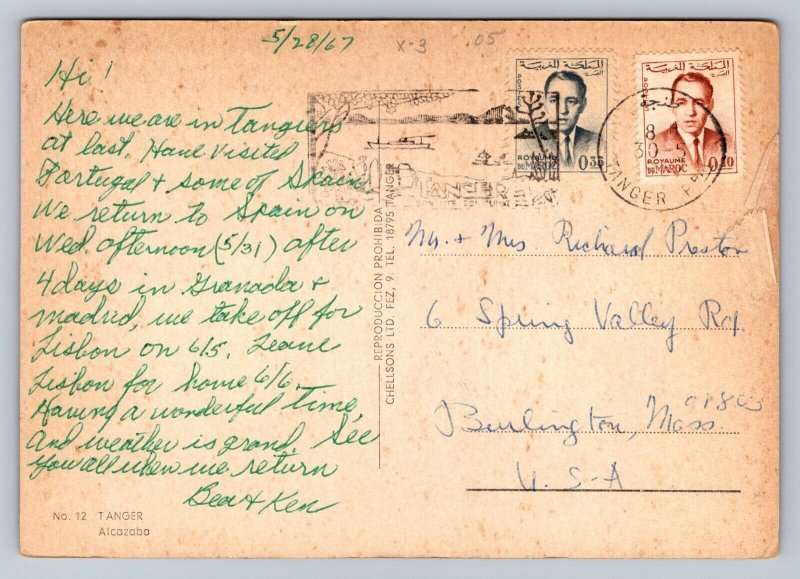 5/28/67
X-3 .05
Hi!
Here we are in Tangiers
at last. Have visited
Portugal & some of Spain
We return to Spain on
Wed. afternoon (5/31) after
4 days in Granada &
madrid, we take off for
Lisbon on 6/5. Leave
Lisbon for home 6/6.
Having a wonderful time,
And weather is grand. See
you all when we return
Bea & Ken
No. 12 TANGER
Alcazaba
REPRODUCCION PROHIBIDA
CHELLSONS LTD. FEZ, 9. TEL. 18795 TANGER
TANGER
المملكة المغربية
ROYAUME
DU MAROC 0.35
المملكة المغربية
ROYAUME
DU MAROC 0.10
طنجة
18
30-5
TANGER
Mr. & Mrs Richard Preston
6 Spring Valley Rd.
Burlington, Mass. 01803
U.S-A